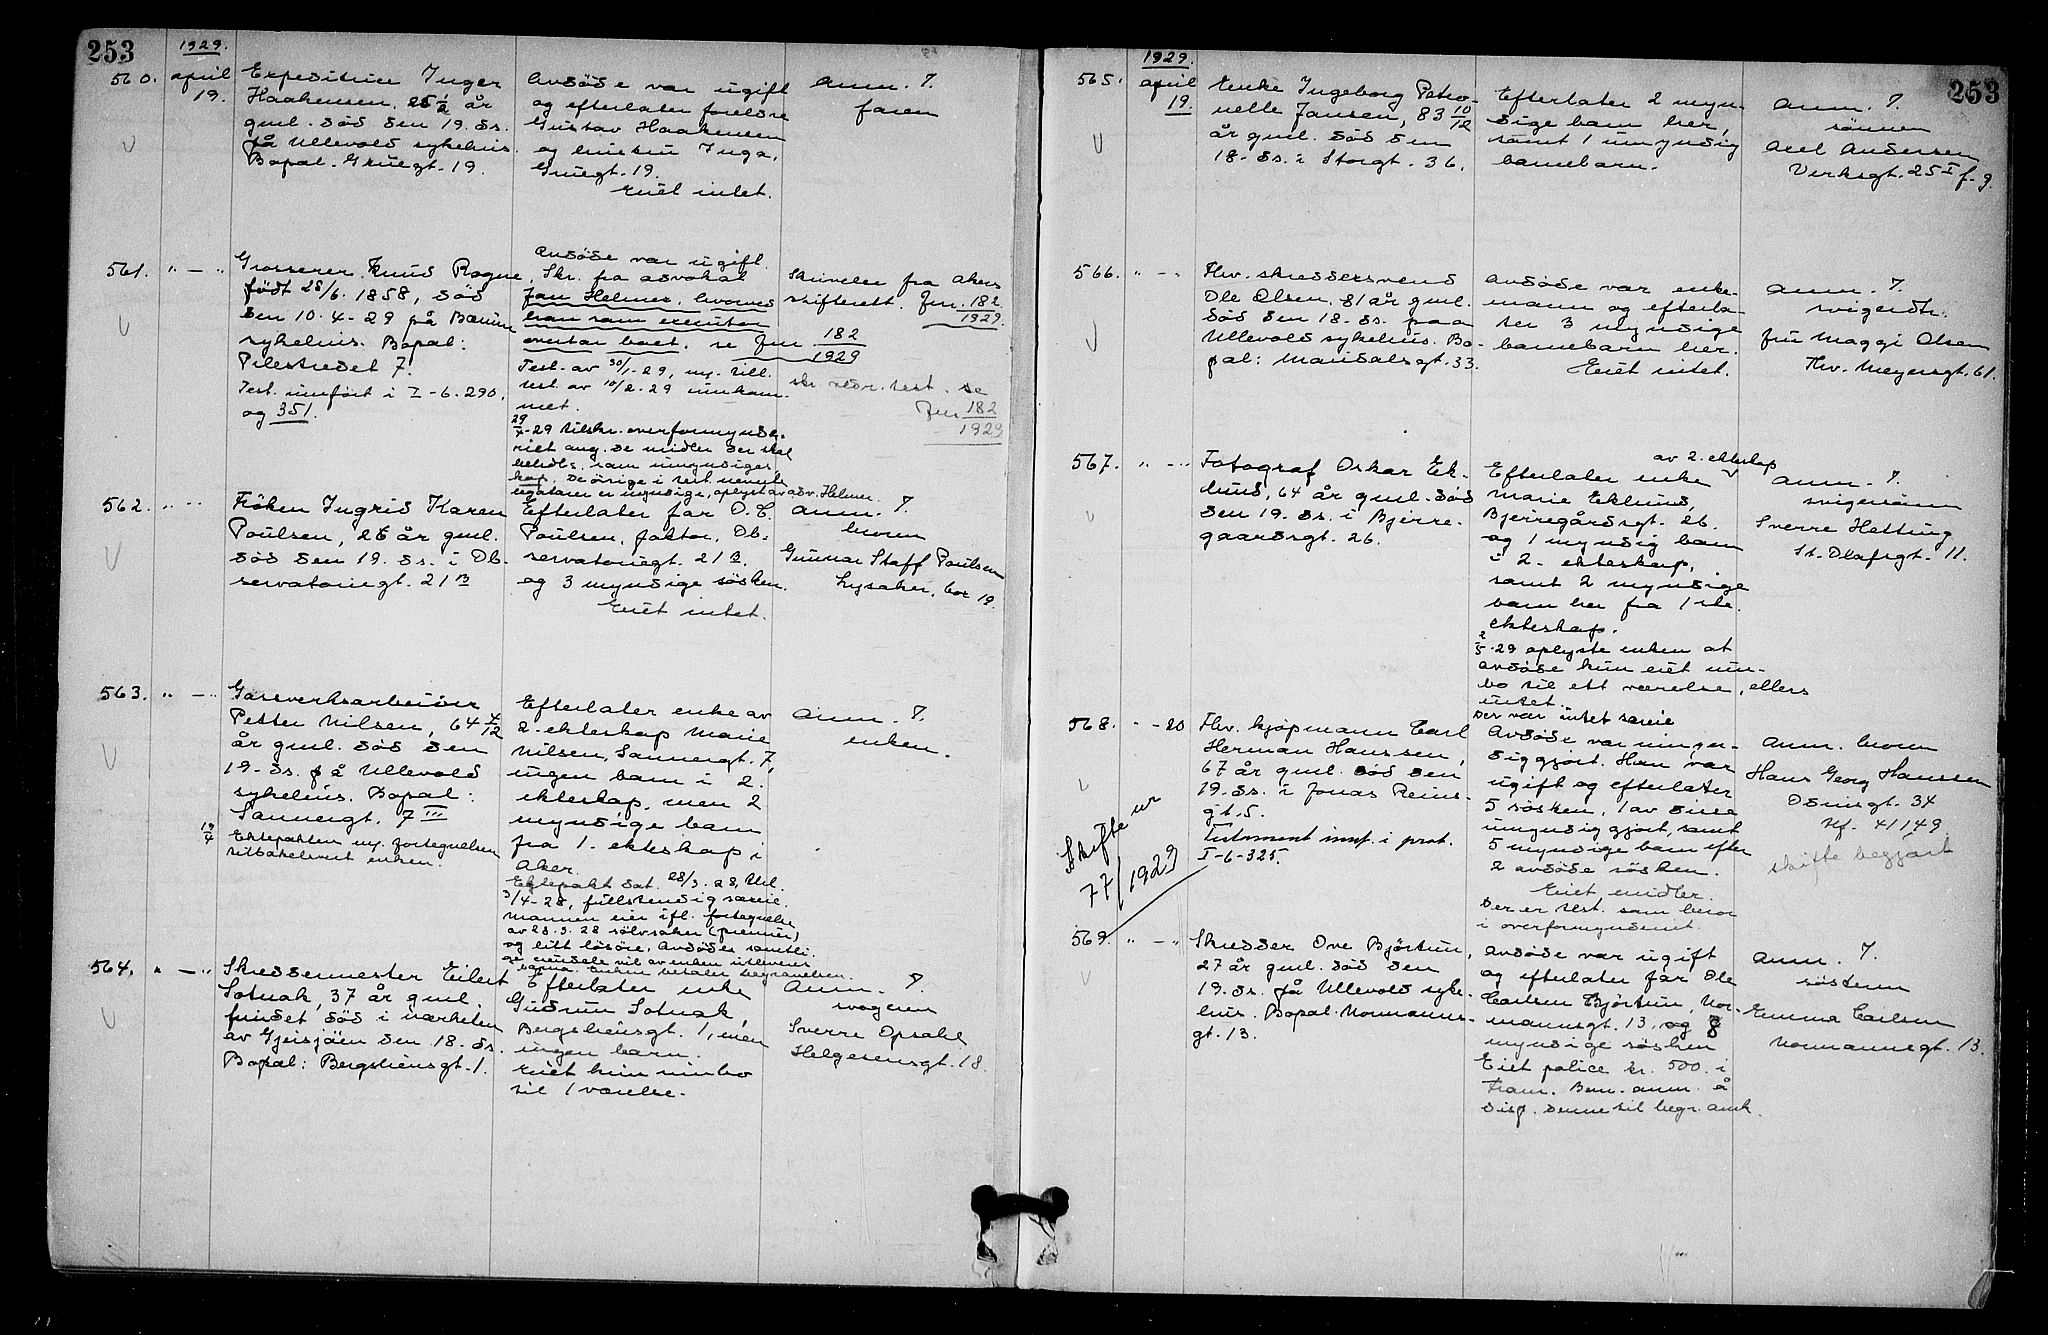 253
1929.
560. april 19.
Expeditrice Inger
Haakensen, 25 1/2 år
gml. död den 19. ds.
på Ullevold sykehus.
Bopæl. Gruegt. 19.
Avdöde var ugift
og efterlater foreldre
Gustav Haakensen
og hustru Inga,
Gruegt. 19.
Eiet intet.
Anm. ?.
faren
561. " — "
Grosserer Knud Rogne,
født 28/6. 1858, död
den 10. 4 - 29 på Bærum
sykehus. Bopæl:
Pilestredet 7.
Test. innført i I - 6. 290,
og 351.
Avdöde var ugift.
Skr. fra advokat
Jan Helmer, hvorved
han som executor
overtar boet. se Jnr 182/1929
Test. av 30/1-29, m. till.
test av 10/2-29 innkom-
met.
29/4-29 tilskr. overformynde-
riet ang. de midler der skal
beholdes som umyndiges
kap. De övrige i test. nevnte
legatarer er myndige, oplyst av adv. Helmer.
Skrivelse fra Akers
skifterett. Jnr. 182
1929.
skr. vedr. test. se
Jnr 182
1929
562. " — "
Fröken Ingrid Karen
Poulsen, 26 år gml.
död den 19. ds. i Ob-
servatoriegt. 21 B
Efterlater far O. C.
Poulsen, faktor, Ob-
servatoriegt. 21 B.
og 3 myndige sösken.
Eiet intet.
Anm. ?.
broren
Gunnar Staff Poulsen
Lysaker, box 19.
563. " — "
Gassverksarbeider
Petter Nilsen, 64 4/12
år gml. död den
19. ds. på Ullevold
sykehus. Bopæl:
Sannergt. 7 III
19/4 Ektepakten m. fortegnelsen
tilbakelevert enken.
Efterlater enke av
2. ekteskap Marie
Nilsen, Sannergt. 7,
ingen barn i 2.
ekteskap, men 2
myndige barn
fra 1. ekteskap i
Aker.
Ektepakt dat. 28/3. 28, tinl.
3/4-28, fullstendig særeie.
Mannen eier ifl. fortegnelse
av 28. 3. 28 sölvsaker (premier)
og litt lösöre. Avdödes samtli-
ge eiendele vil av enken utleveres
barna. Enken betaler begravelsen.
Anm. ?.
enken.
564. " — "
Skreddermester Eilert
Sotnak, 37 år gml.
fundet död i nærheten
av Gjersjöen den 18. ds.
Bopæl: Bergsliensgt. 1.
Efterlater enke
Gudrun Sotnak,
Bergsliensgt. 1, men
ingen barn.
Eiet kun innbo
til 1 værelse.
Anm. ?.
svogeren
Sverre Opsahl
Helgesensgt. 18.
253
1929.
565. april 19.
Enke Ingeborg Petro-
nelle Jansen, 83 10/12
år gml. död den
18. ds. i Storgt. 36.
Efterlater 2 myn-
dige barn her,
samt 1 umyndig
barnebarn.
Anm. ?.
sönnen
Axel Andersen
Verksgt. 25 I f. g.
566. " — "
Fhv. skreddersvend
Ole Olsen, 81 år gml.
död den 18. ds. paa
Ullevold sykehus. Bo-
pæl: Mandalsgt. 33.
Avdöde var enke-
mann og efterla-
ter 3 myndige
barnebarn her.
Eiet intet.
Anm. ?.
svigerdtr.
fru Maggi Olsen
Thv. Meyersgt. 61.
567. " — "
Fotograf Oskar Ek-
lund, 64 år gml. död
den 19. ds. i Bjerre-
gaardsgt. 26.
av 2. ekteskap
Efterlater enke
Marie Eklund,
Bjerregårdsgt. 26.
og 1 myndig barn
i 2. ekteskap,
samt 2 myndige
barn her fra 1ste
ekteskap.
2/5-29 oplyste enken at
avdöde kun eiet inn-
bo til ett værelse, ellers
intet.
Der var intet særeie
Anm. ?.
svigersönn
Sverre Hetting
St. Olafsgt. 11.
568. " — 20
Fhv. kjøpmann Carl
Herman Hanssen,
67 år gml. död den
19. ds. i Jonas Reins-
gt. 5.
Testament innf. i prot.
I-6-325.
Skifte nr
77/1929
Avdöde var umyn-
diggjort. Han var
ugift og efterlater
5 sösken, 1 av disse
umyndiggjort, samt
5 myndige barn efter
2 avdöde sösken.
Eiet midler.
Der er test. som beror
i overformynderiet.
Anm. broren
Hans Georg Hanssen
Odinsgt. 34
tlf. 41149.
skifte begjært
569. " — "
Skredder Ove Bjørtun,
27 år gml. död den
19. ds. på Ullevold syke-
hus. Bopæl. Normanns-
gt. 13.
Avdöde var ugift
og efterlater far Ole
Carlsen Bjørtun, Nor-
mannsgt. 13, og 8
myndige sösken
Eiet police kr. 500. i
Fram. Bem. anm. å
disp. denne til begr. omk.
Anm. ?.
sösteren
Emma Carlsen
Normannsgt. 13.